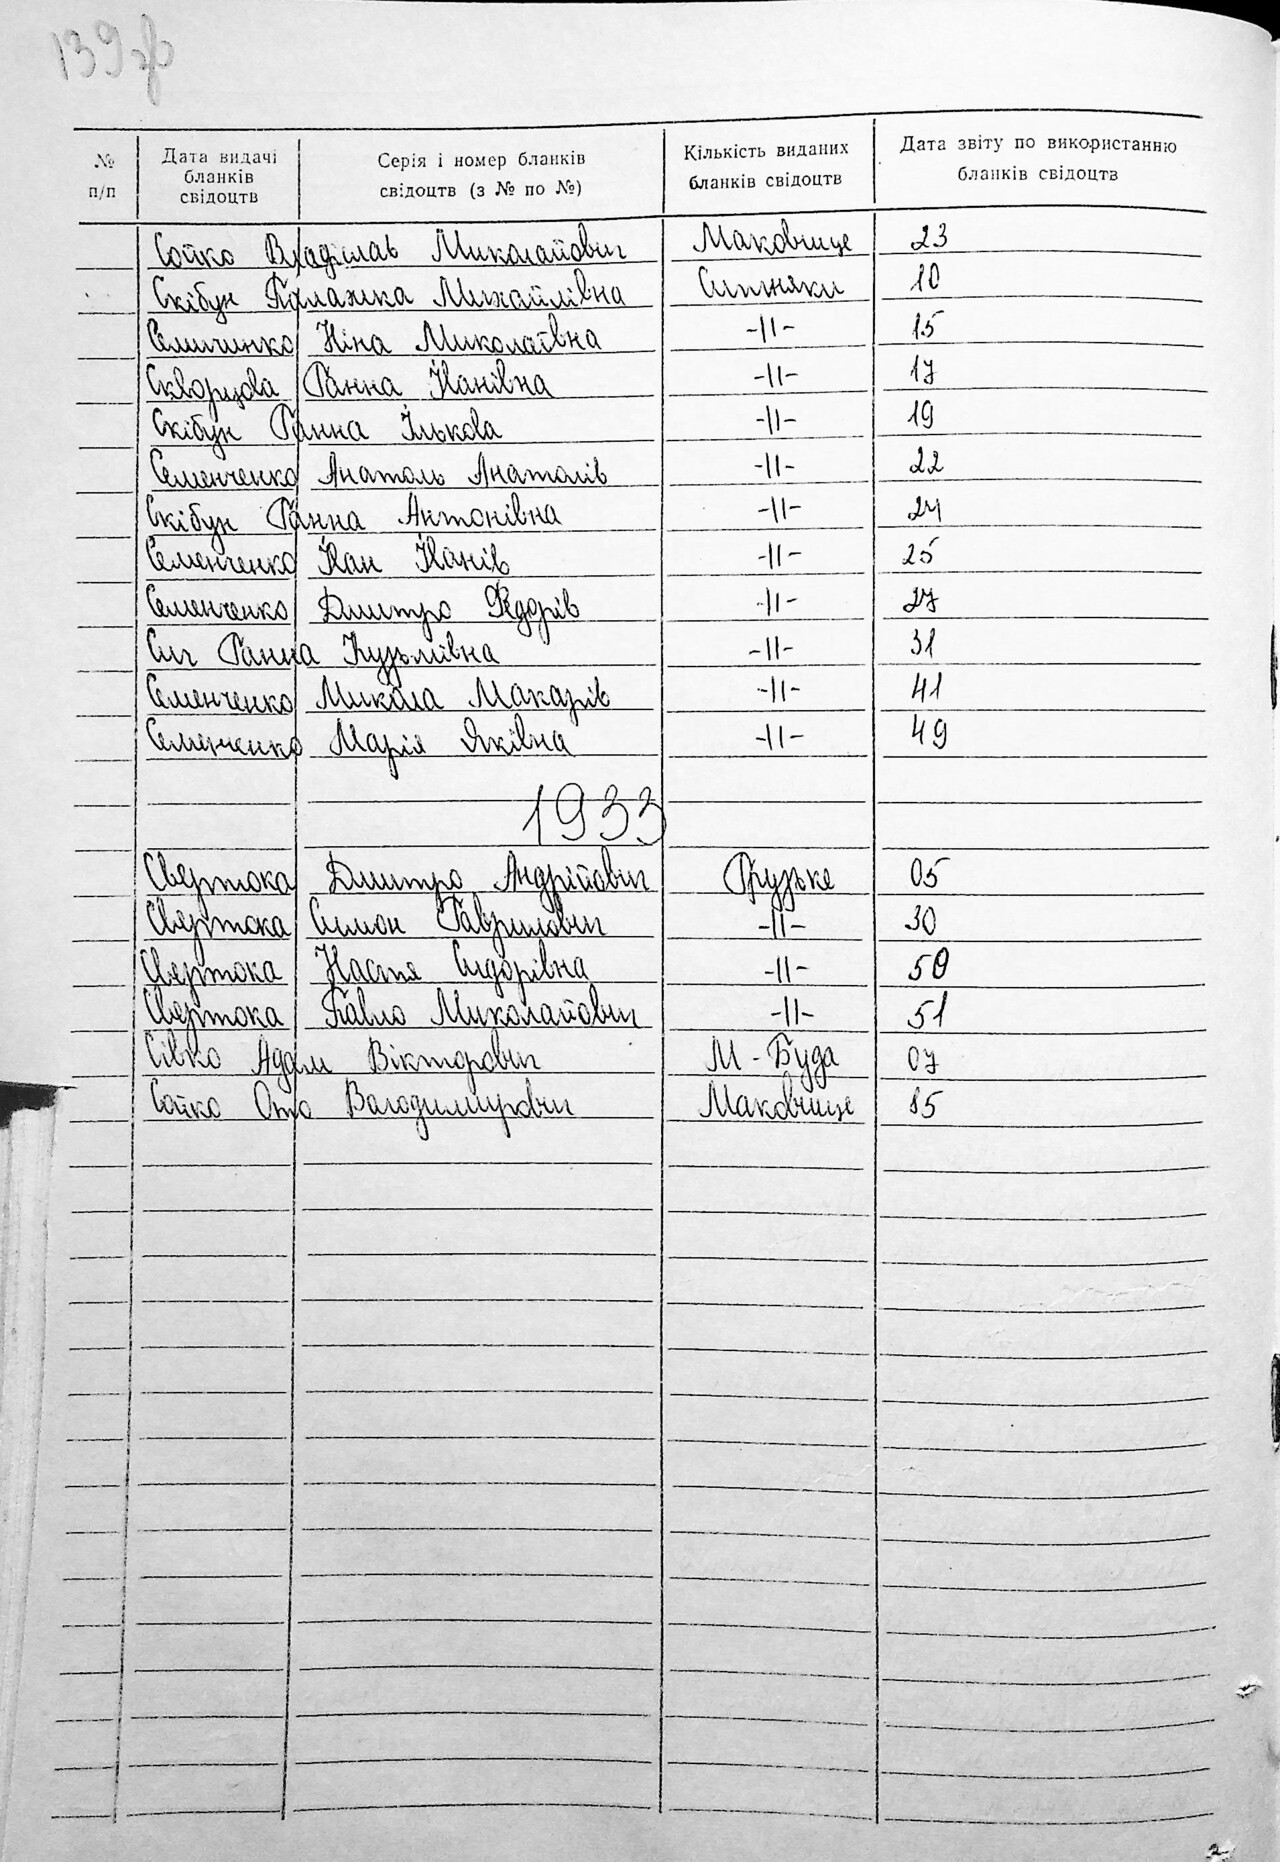 139зв
№ п/п Дата видачі бланків свідоцтв Серія і номер бланків свідоцтв (з № по №) Кількість виданих бланків свідоцтв Дата звіту по використанню бланків свідоцтв
Сойко Владіслав Миколайович Маковище 23
Скібун Палажка Михайлівна Ситняки 10
Ніна Миколаївна -||- 15
Скворцова Ганна Іванівна -||- 17
Скібун Ганна Ількова -||- 19
Семенченко Анатоль Анатолів -||- 22
Скібун Ганна Антонівна -||- 24
Семенченко Іван Іванів -||- 25
Семенченко Дмитро Федорів -||- 27
Сич Ганна Кузьмівна -||- 31
Семенченко Микола Макарів -||- 41
Семенченко Марія Яківна -||- 49
1933
Свертока Дмитро Андрійович Грузьке 05
Свертока Симон Гаврилович -||- 30
Свертока Настя Сидорівна -||- 50
Свертока Павло Миколайович -||- 51
Сівко Адам Вікторович М-Буда 07
Сойко Отто Володимирович Маковище 15